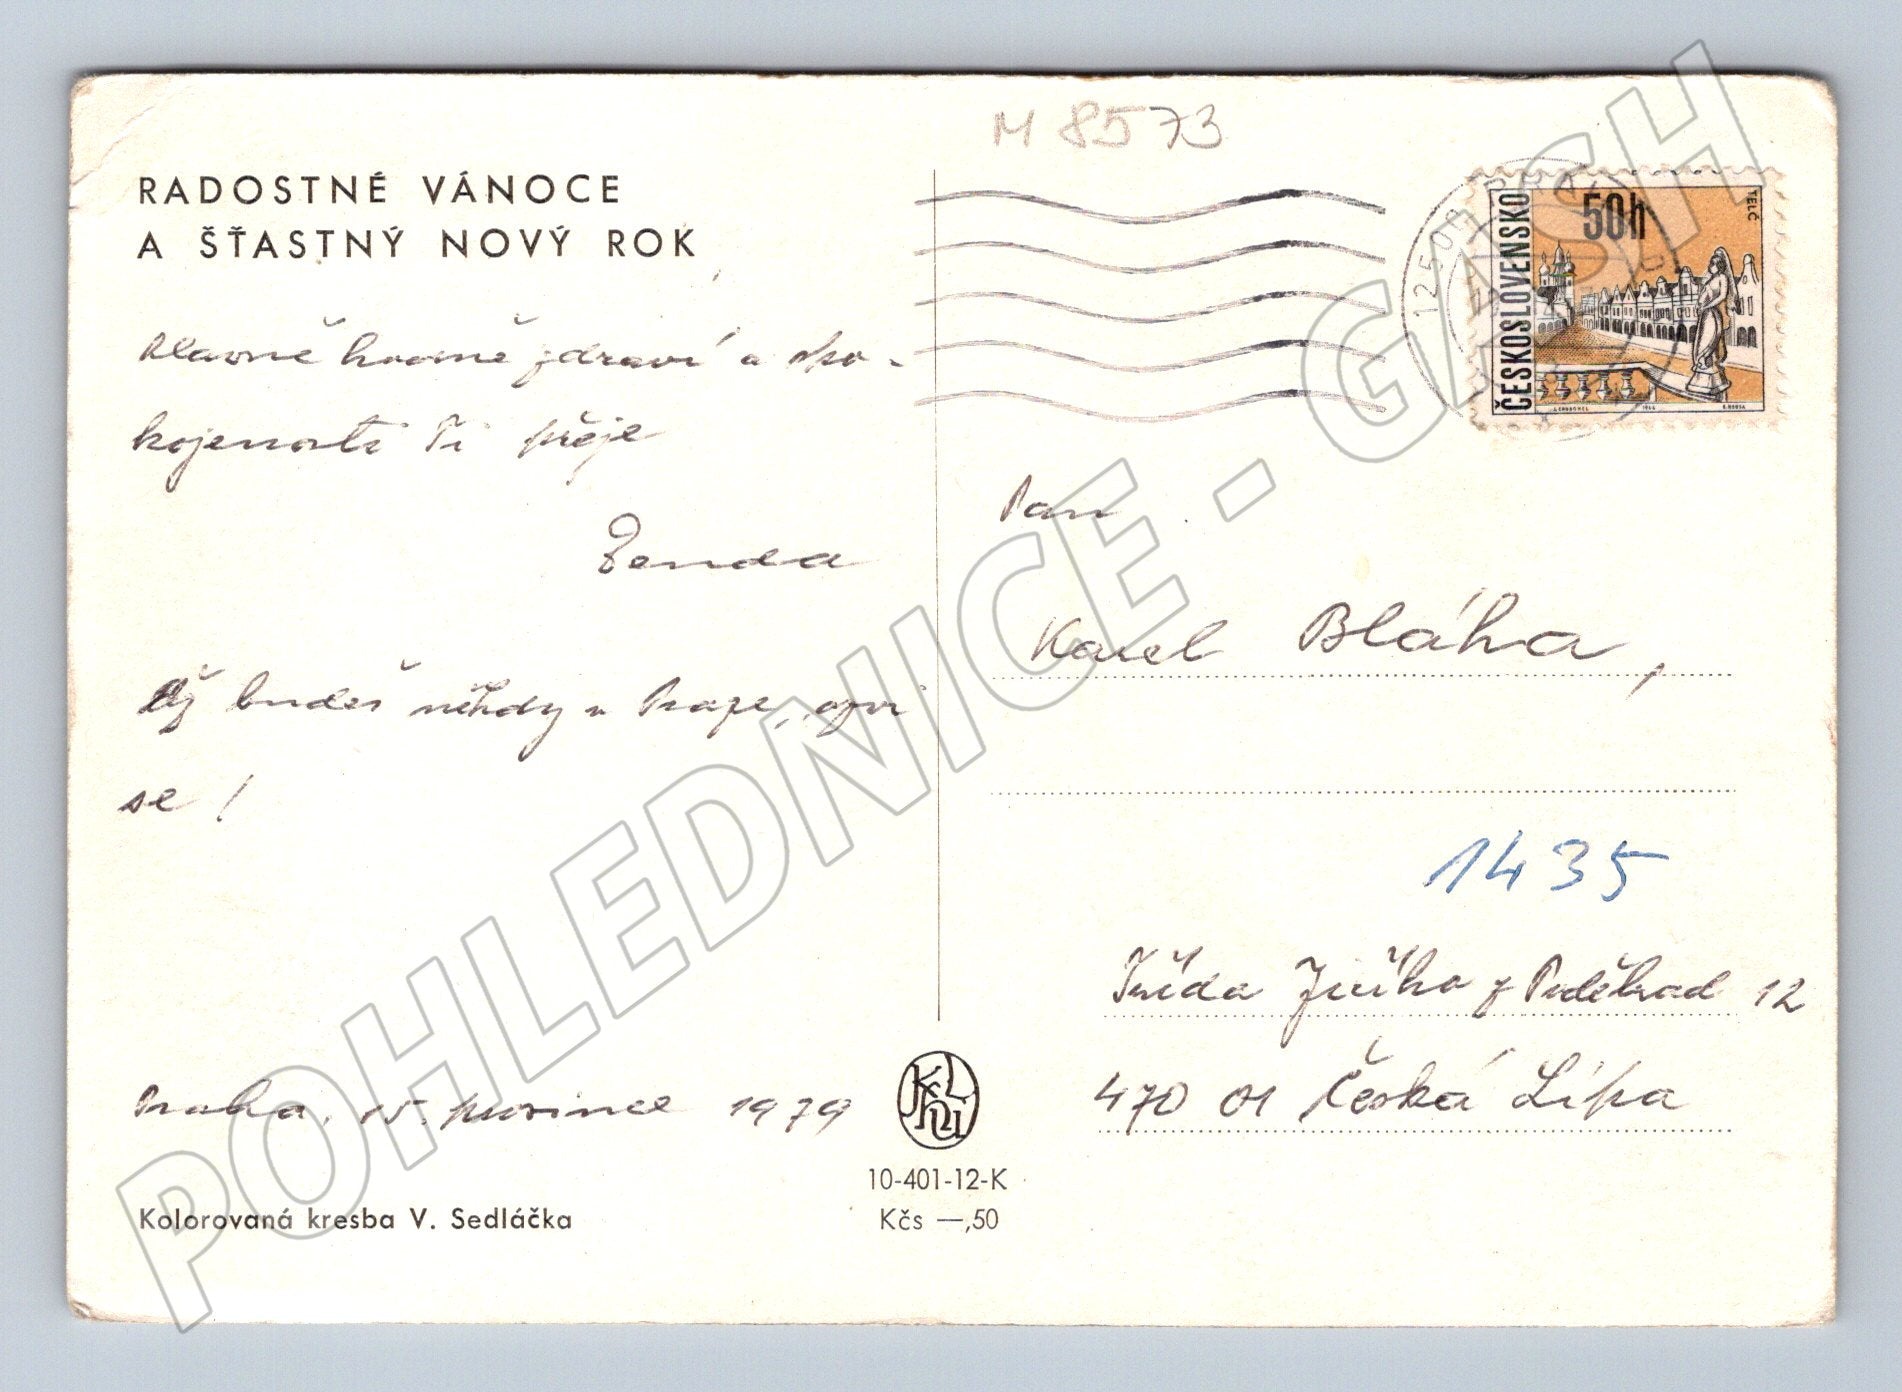 M 8573
RADOSTNÉ VÁNOCE
A ŠŤASTNÝ NOVÝ ROK
50h
TELČ
ČESKOSLOVENSKO
Hlavně hodně zdraví a spo-
kojenosti Ti přeje
Zenda
Až budeš někdy v Praze, ozvi
se!
Pan
Karel Bláha,
1435
Třída Jiřího z Poděbrad 12
470 01 Česká Lípa
Praha, 15. prosince 1979
10-401-12-K
Kčs —,50
Kolorovaná kresba V. Sedláčka
POHLEDNICE - GASH